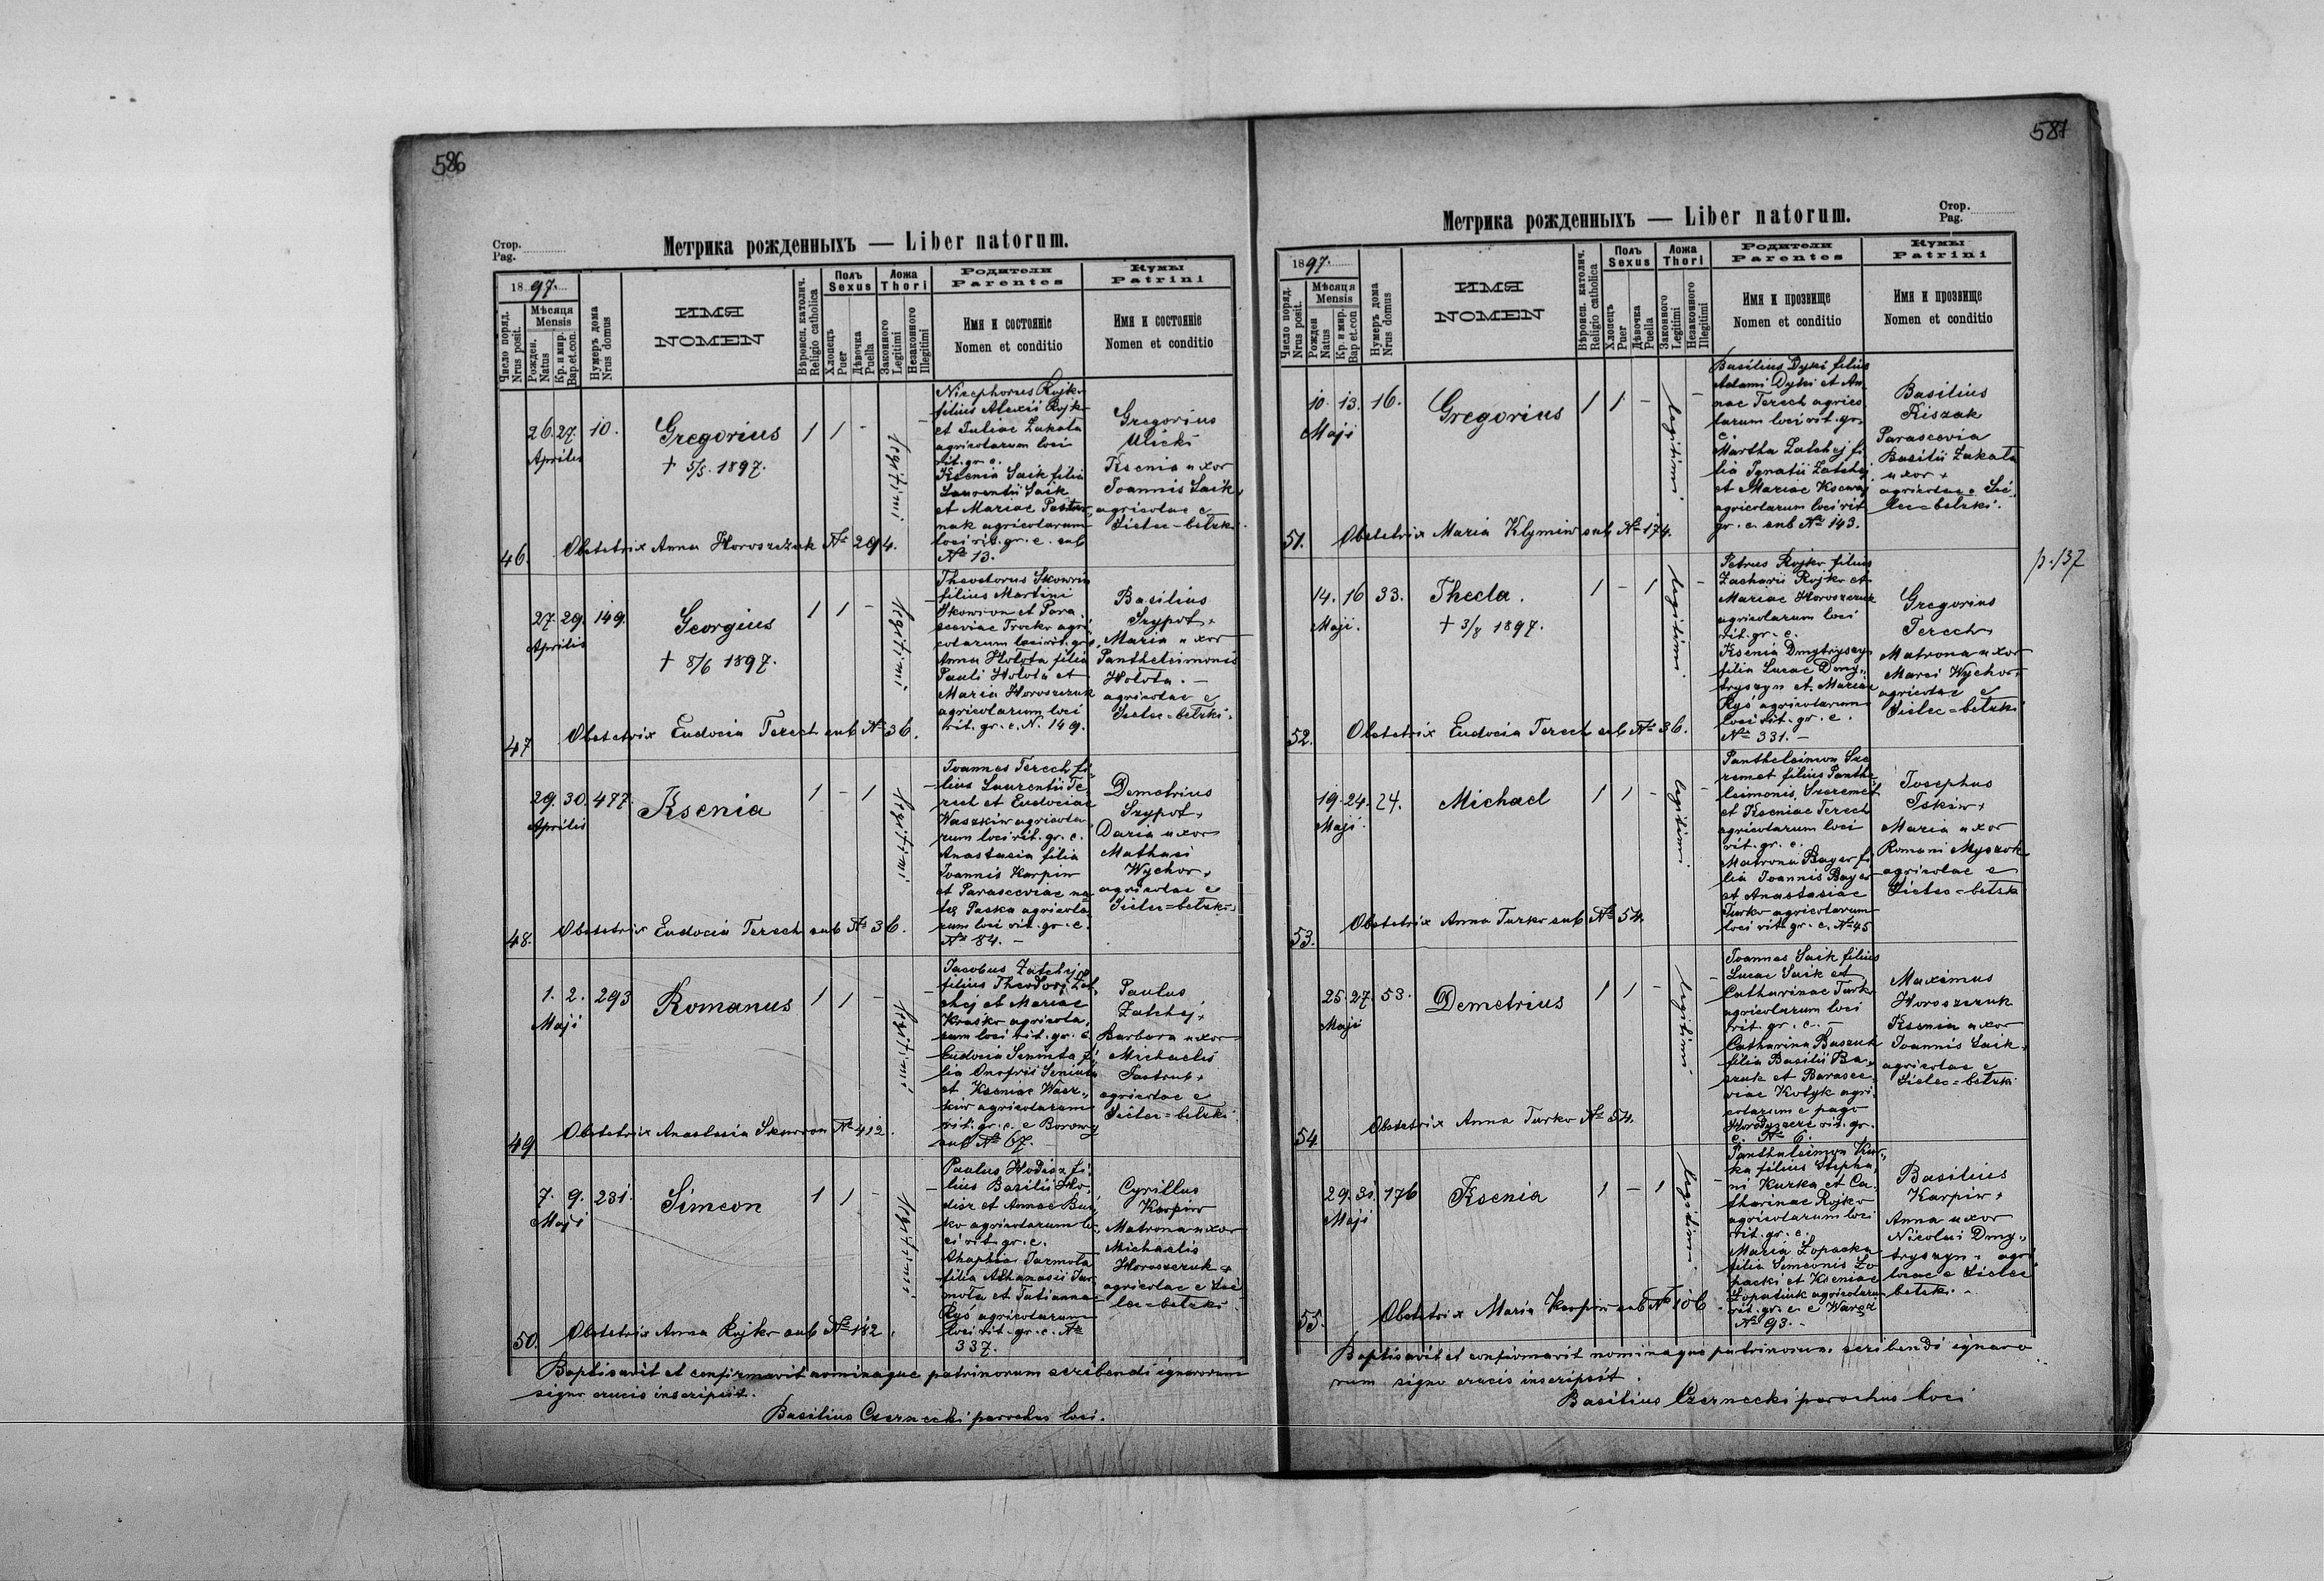 586
Стор.
Pag.
Метрика рожденныхъ — Liber natorum.
1897.
Число поряд.
Nrus posit.
Мѣсяця
Mensis
Рожден.
Natus
Кр. и мир.
Bap.et.con.
Нумеръ дома
Nrus domus
ИМЯ
NOMEN
Вѣроисп. католич.
Religio catholica
Полъ
Sexus
Хлопецъ
Puer
Дѣвочка
Puella
Ложа
Thori
Законного
Legitimi
Незаконного
Illegitimi
Родители
Parentes
Имя и состояніе
Nomen et conditio
Кумы
Patrini
Имя и состояніе
Nomen et conditio
46.
26. 27. 10.
Aprilis
Gregorius
† 5/5. 1897.
1 1 -
legitimi
-
Nicephorus Rojko
filius Alexii Rojko
et Juliae Zakala
agricolarum loci
rit. gr. c.
Ksenia Saik filia
Laurentii Saik
et Mariae Paster-
nak agricolarum
loci rit. gr. c. sub
№ 13.
Gregorius
Ulicki
Ksenia uxor
Joannis Saik,
agricolae e
Sielec-bełzki.
Obstetrix Anna Horoszczuk № 294.
47
27. 29. 149.
Aprilis
Georgius
† 8/6 1897.
1 1 -
legitimi
-
Theodorus Skowron
filius Martini
Skowron et Para-
sceviae Trocko agri-
colarum loci rit. gr. c.
Anna Hołota filia
Pauli Hołota et
Maria Horoszczuk
agricolarum loci
rit. gr. c. N. 149.
Basilius
Szypot +
Maria uxor
Pantheleimonis
Hołota. -
agricolae e
Sielec-bełzki.
Obstetrix Eudocia Terech sub № 36.
48.
29. 30. 477.
Aprilis
Ksenia
1 - 1
legitimi
-
Joannes Terech fi-
lius Laurentii Te-
rech et Eudociae
Waszkiw agricola-
rum loci rit. gr. c.
Anastasia filia
Joannis Karpiw
et Parasceviae na-
ta Paska agricola-
rum loci rit. gr. c.
№ 84. -
Demetrius
Szypot +
Daria uxor
Mathaei
Wychor +
agricolae e
Sielec-bełzki.
Obstetrix Eudocia Terech sub № 36.
49
1. 2. 293
Maji
Romanus
1 1 -
legitimi
-
Jacobus Zatchej
filius Theodori Zat-
chej et Mariae
Kraśko agricola-
rum loci rit. gr. c.
Eudocia Seniuta fi-
lia Onofrii Seniuta
et Kseniae Wasz-
kiw agricolarum
rit. gr. c. e Borowy
sub № 67.
Paulus
Zatchej +
Barbara uxor
Michaelis
Jastrub +
agricolae e
Sielec-bełzki.
Obstetrix Anastasia Skowron № 412.
50.
7. 9. 231.
Maji
Simeon
1 1 -
legitimi
-
Paulus Hodisz fi-
lius Basilii Ho-
disz et Annae Bus-
ko agricolarum lo-
ci rit. gr. c.
Ahaphia Jarmoła
filia Athanasii Jar-
moła et Tatianna
Ryś agricolarum
loci rit. gr. c. №
337.
Cyrillus
Karpiw
Matrona uxor
Michaelis
Horoszczuk +
agricolae e Sie-
lec-bełzki.
Obstetrix Anna Rojko sub № 182.
Baptisavit et confirmavit nominaque patrinorum scribendi ignarorum
signo crucis inscripsit.
Basilius Czernecki parochus loci.
587
Стор.
Pag.
Метрика рожденныхъ — Liber natorum.
1897.
Число поряд.
Nrus posit.
Мѣсяця
Mensis
Рожден
Natus
Кр. и мир.
Bap et.con
Нумеръ дома
Nrus domus
ИМЯ
NOMEN
Вѣроисп. католич.
Religio catholica
Полъ
Sexus
Хлопецъ
Puer
Дѣвочка
Puella
Ложа
Thori
Законного
Legitimi
Незаконного
Illegitimi
Родители
Parentes
Имя и прозвище
Nomen et conditio
Кумы
Patrini
Имя и прозвище
Nomen et conditio
51.
10. 13. 16.
Maji
Gregorius
1 1 -
legitimi
-
Basilius Dyki filius
Adami Dyki et An-
nae Terech agrico-
larum loci rit. gr.
c.
Martha Zatchej fi-
lia Ignatii Zatchej
et Mariae
agricolarum loci rit.
gr. c. sub № 143.
Basilius
Kiszak
Parascevia
Basilii Zakała
uxor +
agricolae e Sie-
lec-bełzki.
Obstetrix Maria Klymiw sub № 174.
52.
14. 16 33.
Maji.
Thecla.
† 3/8 1897.
1 - 1
legitimi
-
Petrus Rojko filius
Zacharii Rojko et
Mariae Horoszczuk
agricolarum loci
rit. gr. c.
Ksenia Dmytryszyn
filia Lucae Dmy-
tryszyn et Mariae
Ryś agricolarum
loci rit. gr. c.
№ 331. -
Gregorius
Terech
Matrona uxor
Marci Wychor +
agricolae e
Sielec-bełzki
p. 137
Obstetrix Eudocia Terech sub № 36.
53.
19. 24. 24.
Maji.
Michael
1 1 -
legitimi
-
Pantheleimon Sze-
remet filius Panthe-
leimonis Szeremet
et Kseniae Terech
agricolarum loci
rit. gr. c.
Matrona Bayer fi-
lia Joannis Bayer
et Anastasiae
Turko agricolarum
loci rit. gr. c. № 45
Josephus
Iskiw +
Maria uxor
Romani Myszok
agricolae e
Sielec-bełzk
Obstetrix Anna Turko sub № 54.
54
25. 27. 53.
Maji
Demetrius
1 1 -
legitimi
-
Joannes Saik filius
Lucae Saik et
Catharinae Turko
agricolarum loci
rit. gr. c. -
Catharina Baszuk
filia Basilii Ba-
szuk et Parasce-
viae Kotyk agri-
colarum e pago
rit. gr.
c. № 6.
Maximus
Horoszczuk
Ksenia uxor
Joannis Saik +
agricolae e
Sielec-bełzki
Obstetrix Anna Turko № 54.
55.
29. 31. 176
Maji
Ksenia
1 - 1
legitimi
-
Pantheleimon Kur-
ka filius Stepha-
ni Kurka et Ca-
tharinae Rojko
agricolarum loci
rit. gr. c.
Maria Łopacka
filia Simeonis Ło-
packi et Kseniae
Łopatiuk agricolarum
rit. gr. c. e Waręż
№ 93. -
Basilius
Karpiw +
Anna uxor
Nicolai Dmy-
tryszyn + agri-
colae e Sielec
bełzk. -
Obstetrix Maria Karpiw sub № 106.
Baptisavit et confirmavit nominaque patrinorum scribendi ignaro-
rum signo crucis inscripsit.
Basilius Czernecki parochus loci